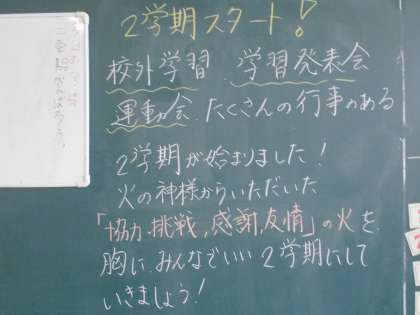 2学期スタート!
校外学習、学習発表会
運動会、たくさんの行事のある
2学期が始まりました!
火の神様からいただいた
「協力、挑戦、感謝、友情」の火を
胸に、みんなでいい2学期にして
いきましょう!